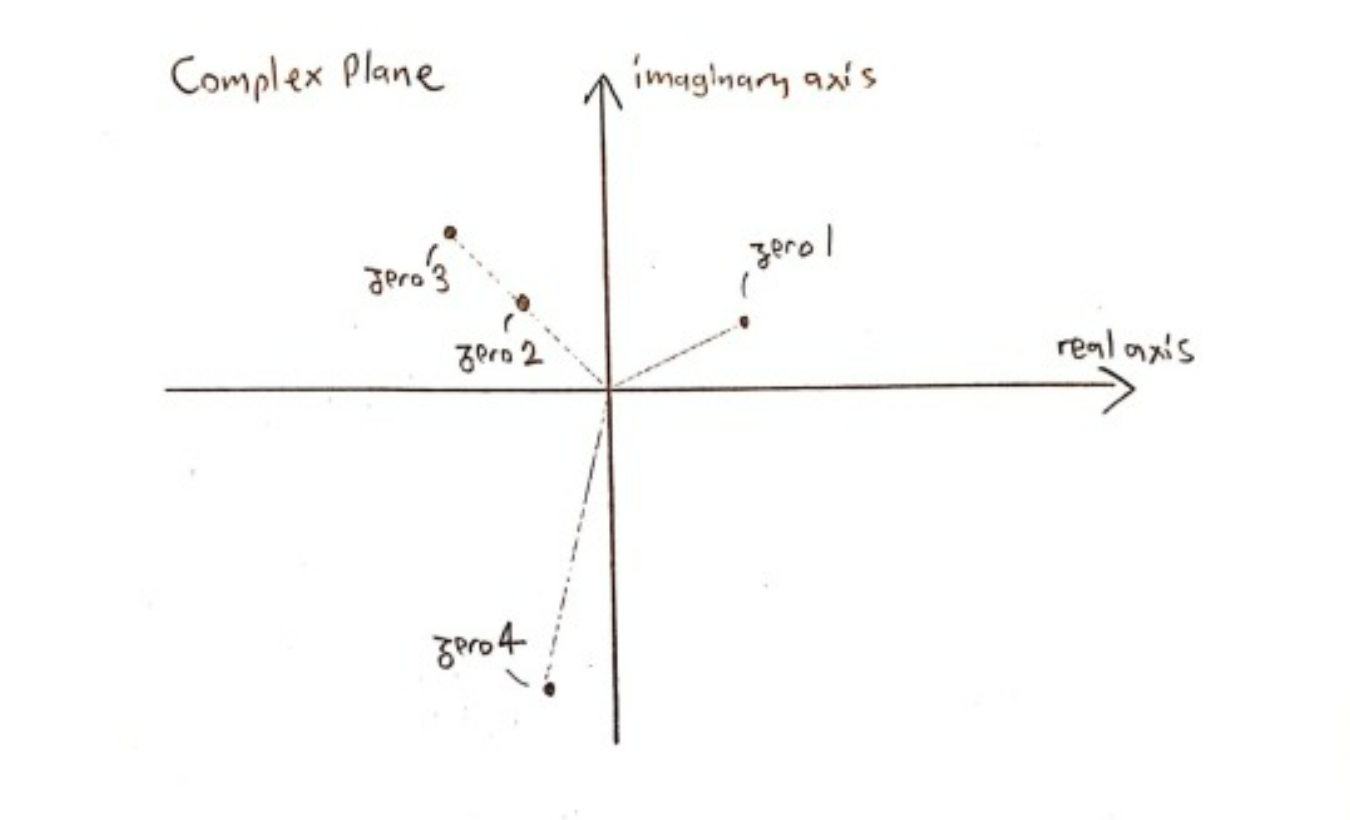 Complex Plane
imaginary axis
zero 1
zero 3
zero 2
real axis
zero 4